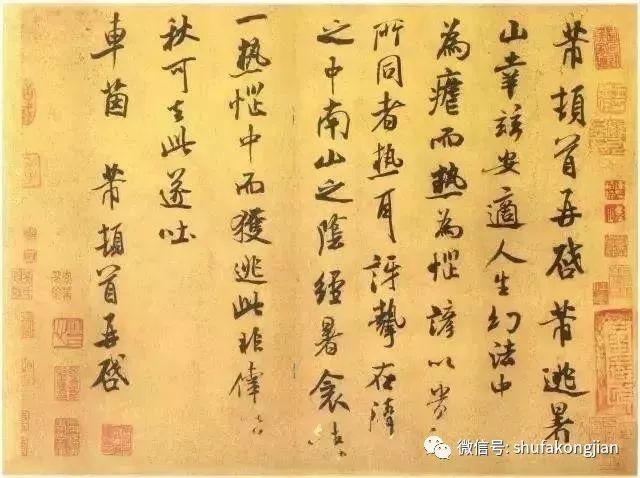 芾頓首再啓芾逃暑
山幸兹安適人生幻法中
為瘧而熱為惱諺以貴
所同者熱耳訝摯在清
之中南山之陰經暑衾
一熱惱中而獲逃此非幸
秋可去此遂吐
車茵 芾頓首再啓
微信号: shufakongjian